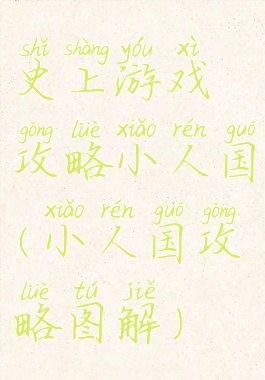 shǐ shàng yóu xì
史上游戏
gōng lüè xiǎo rén guó
攻略小人国
xiǎo rén guó gōng
(小人国攻
lüè tú jiě
略图解)